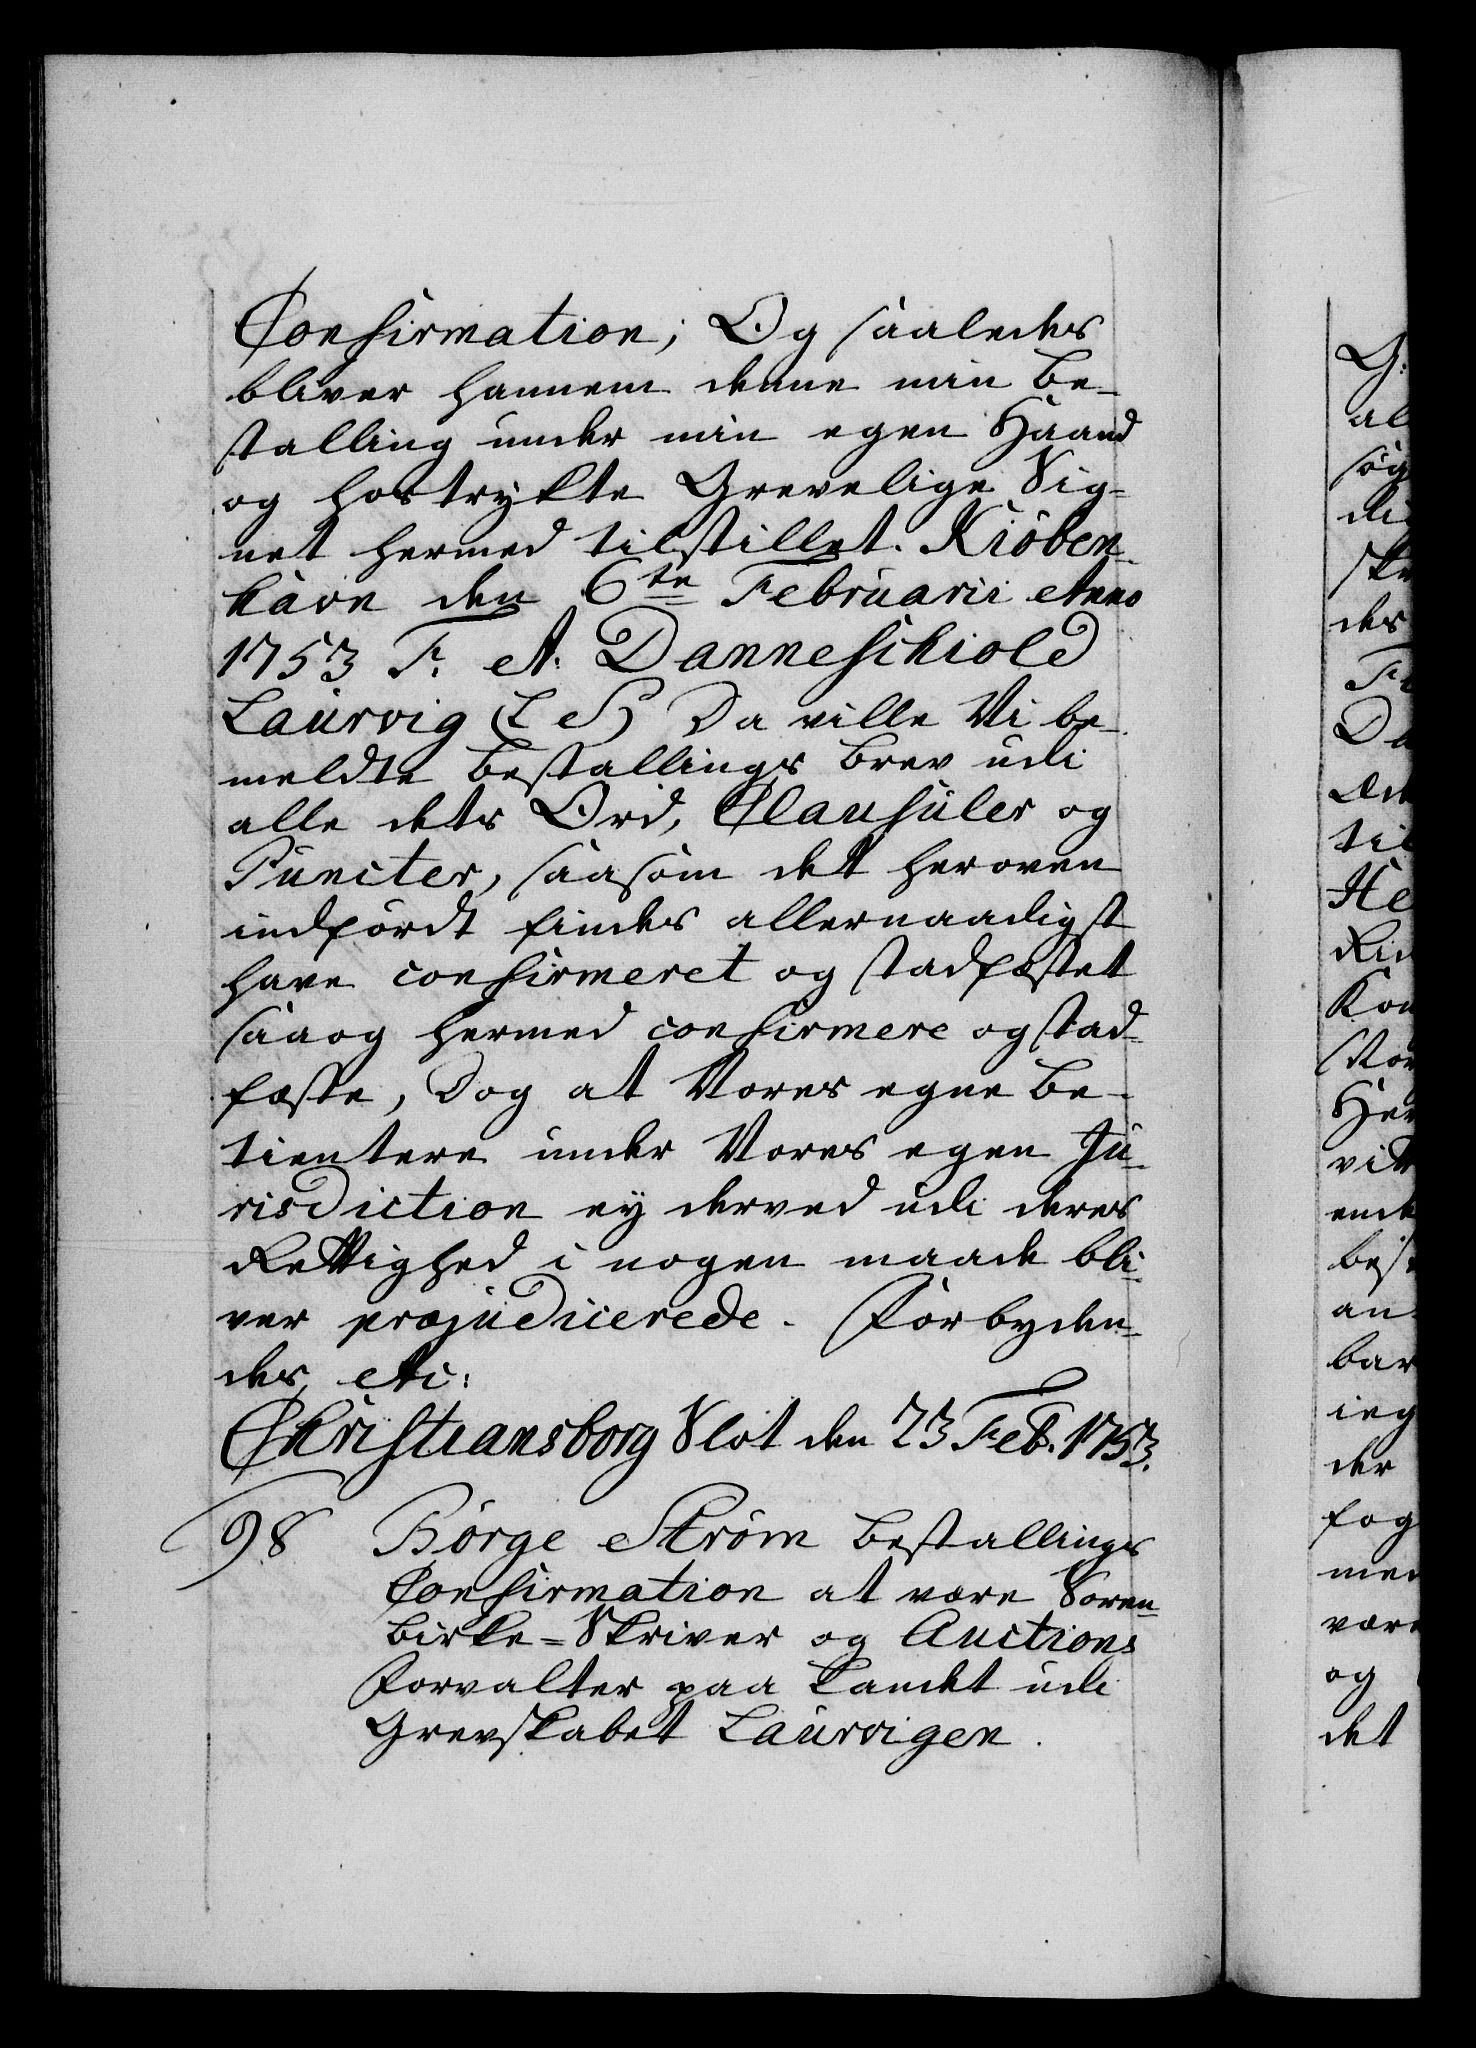 Confirmation; Og saaledes
bliver hannem denne min Be-
stalling under min egen Haand
og hostrykte Grevelige Sig-
net hermed tilstillet. Kiöben-
havn den 6te Februarii Anno
1753 F. A. Danneschiold
Laurvig (L S) Da ville Vi be-
meldte Bestallings Brev udi
alle dets Ord, Clausuler og
Puncter, saasom det heroven
indfördt findes allernaadigst
have confirmeret og stadfæstet
saa og hermed confirmere og stad-
fæste, Dog at Vores egne Be-
tientere under Vores egen Ju-
risdiction ey derved udi deres
Rettighed i nogen maade bli-
ver præjudicerede. Forbyden-
des etc:
Christiansborg Slot den 23 Feb. 1753.
98 Börge Ström Bestallings
Confirmation at være Soren-
Birke-Skriver og Auctions
Forvalter paa Landet udi
Grevskabet Laurvigen.
G:
al
søg
di
Sk
des
Fr
Da
til
He
Kon
Her
vitt
ende
best
an
bar
ieg
der
fog
med
være
og
det